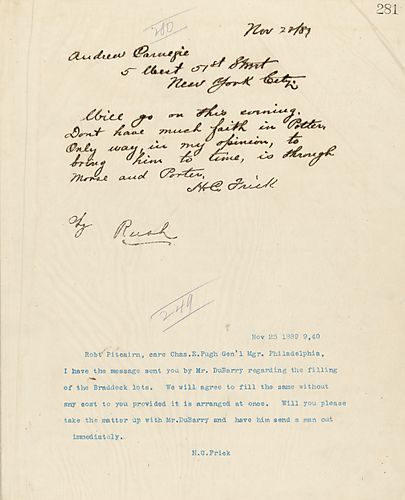 281
280
Nov 22/89
Andrew Carnegie
5 West 51st Street
New York City
Will go on this evening.
Dont have much faith in Potter,
Only way, in my opinion, to
bring him to time, is through
Morse and Porter.
H.C. Frick
by Rush
249
Nov 25 1889 9,40
Robt Pitcairn, care Chas.E.Pugh Gen'l Mgr. Philadelphia,
I have the message sent you by Mr. DuBarry regarding the filling
of the Braddock lots. We will agree to fill the same without
any cost to you provided it is arranged at once. Will you please
take the matter up with Mr.DuBarry and have him send a man out
immediately.
H.C.Frick